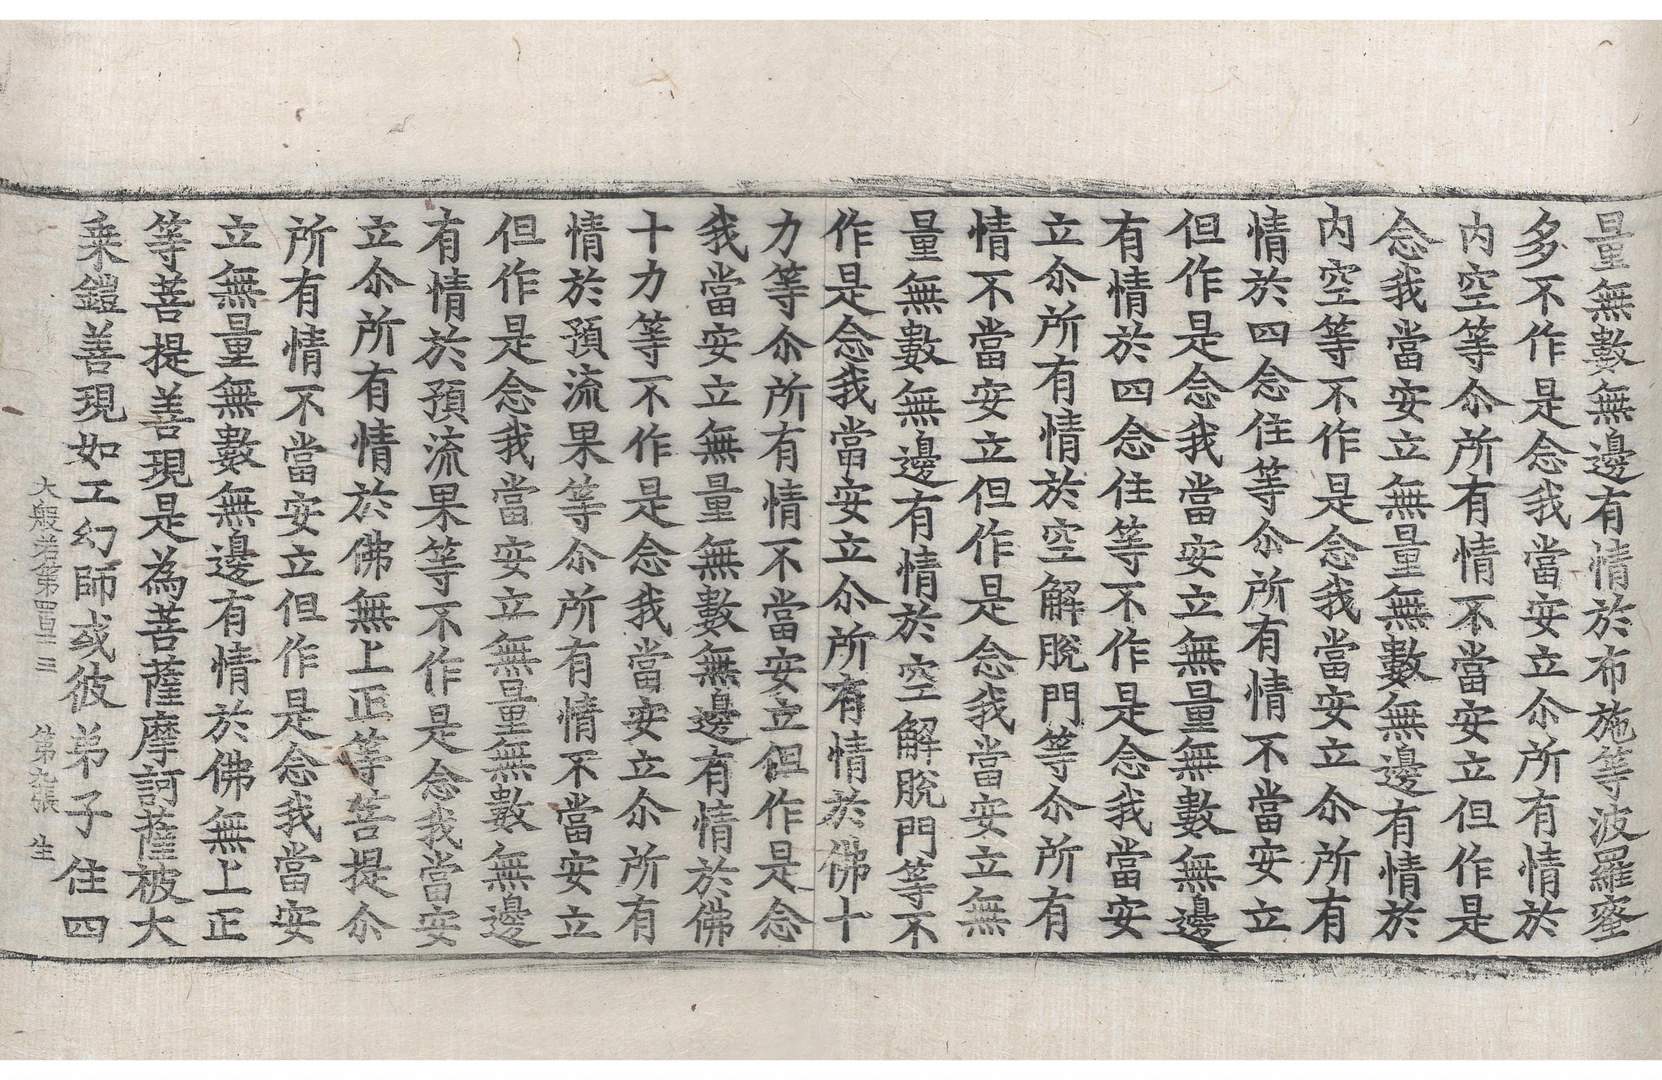 量無數無邊有情於布施等波羅蜜
多不作是念我當安立尒所有情於
内空等尒所有情不當安立但作是
念我當安立無量無數無邊有情於
内空等不作是念我當安立尒所有
情於四念住等尒所有情不當安立
但作是念我當安立無量無數無邊
有情於四念住等不作是念我當安
立尒所有情於空解脫門等尒所有
情不當安立但作是念我當安立無
量無數無邊有情於空解脫門等不
作是念我當安立尒所有情於佛十
力等尒所有情不當安立但作是念
我當安立無量無數無邊有情於佛
十力等不作是念我當安立尒所有
情於預流果等尒所有情不當安立
但作是念我當安立無量無數無邊
有情於預流果等不作是念我當安
立尒所有情於佛無上正等菩提尒
所有情不當安立但作是念我當安
立無量無數無邊有情於佛無上正
等菩提善現是為菩薩摩訶薩被大
乗鎧善現如工幻師或彼弟子住四
大般若第四百十三 第九張 生